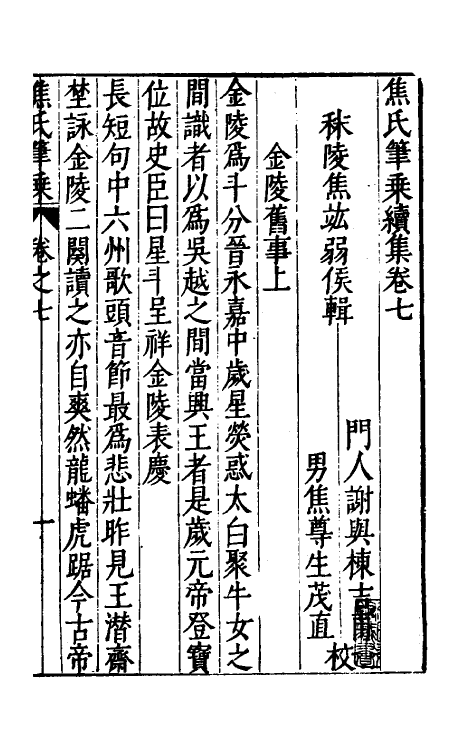 焦氏筆乘續集卷七
秣陵焦竑弱侯輯
門人謝與棟
男焦尊生茂直 校
金陵舊事上
金陵爲斗分晉永嘉中歲星熒惑太白聚牛女之
間識者以爲吳越之間當興王者是歲元帝登寶
位故史臣曰星斗呈祥金陵表慶
長短句中六州歌頭音節最爲悲壯昨見王潛齋
埜詠金陵二闋讀之亦自爽然龍蟠虎踞今古帝
焦氏筆乘 卷之七 十